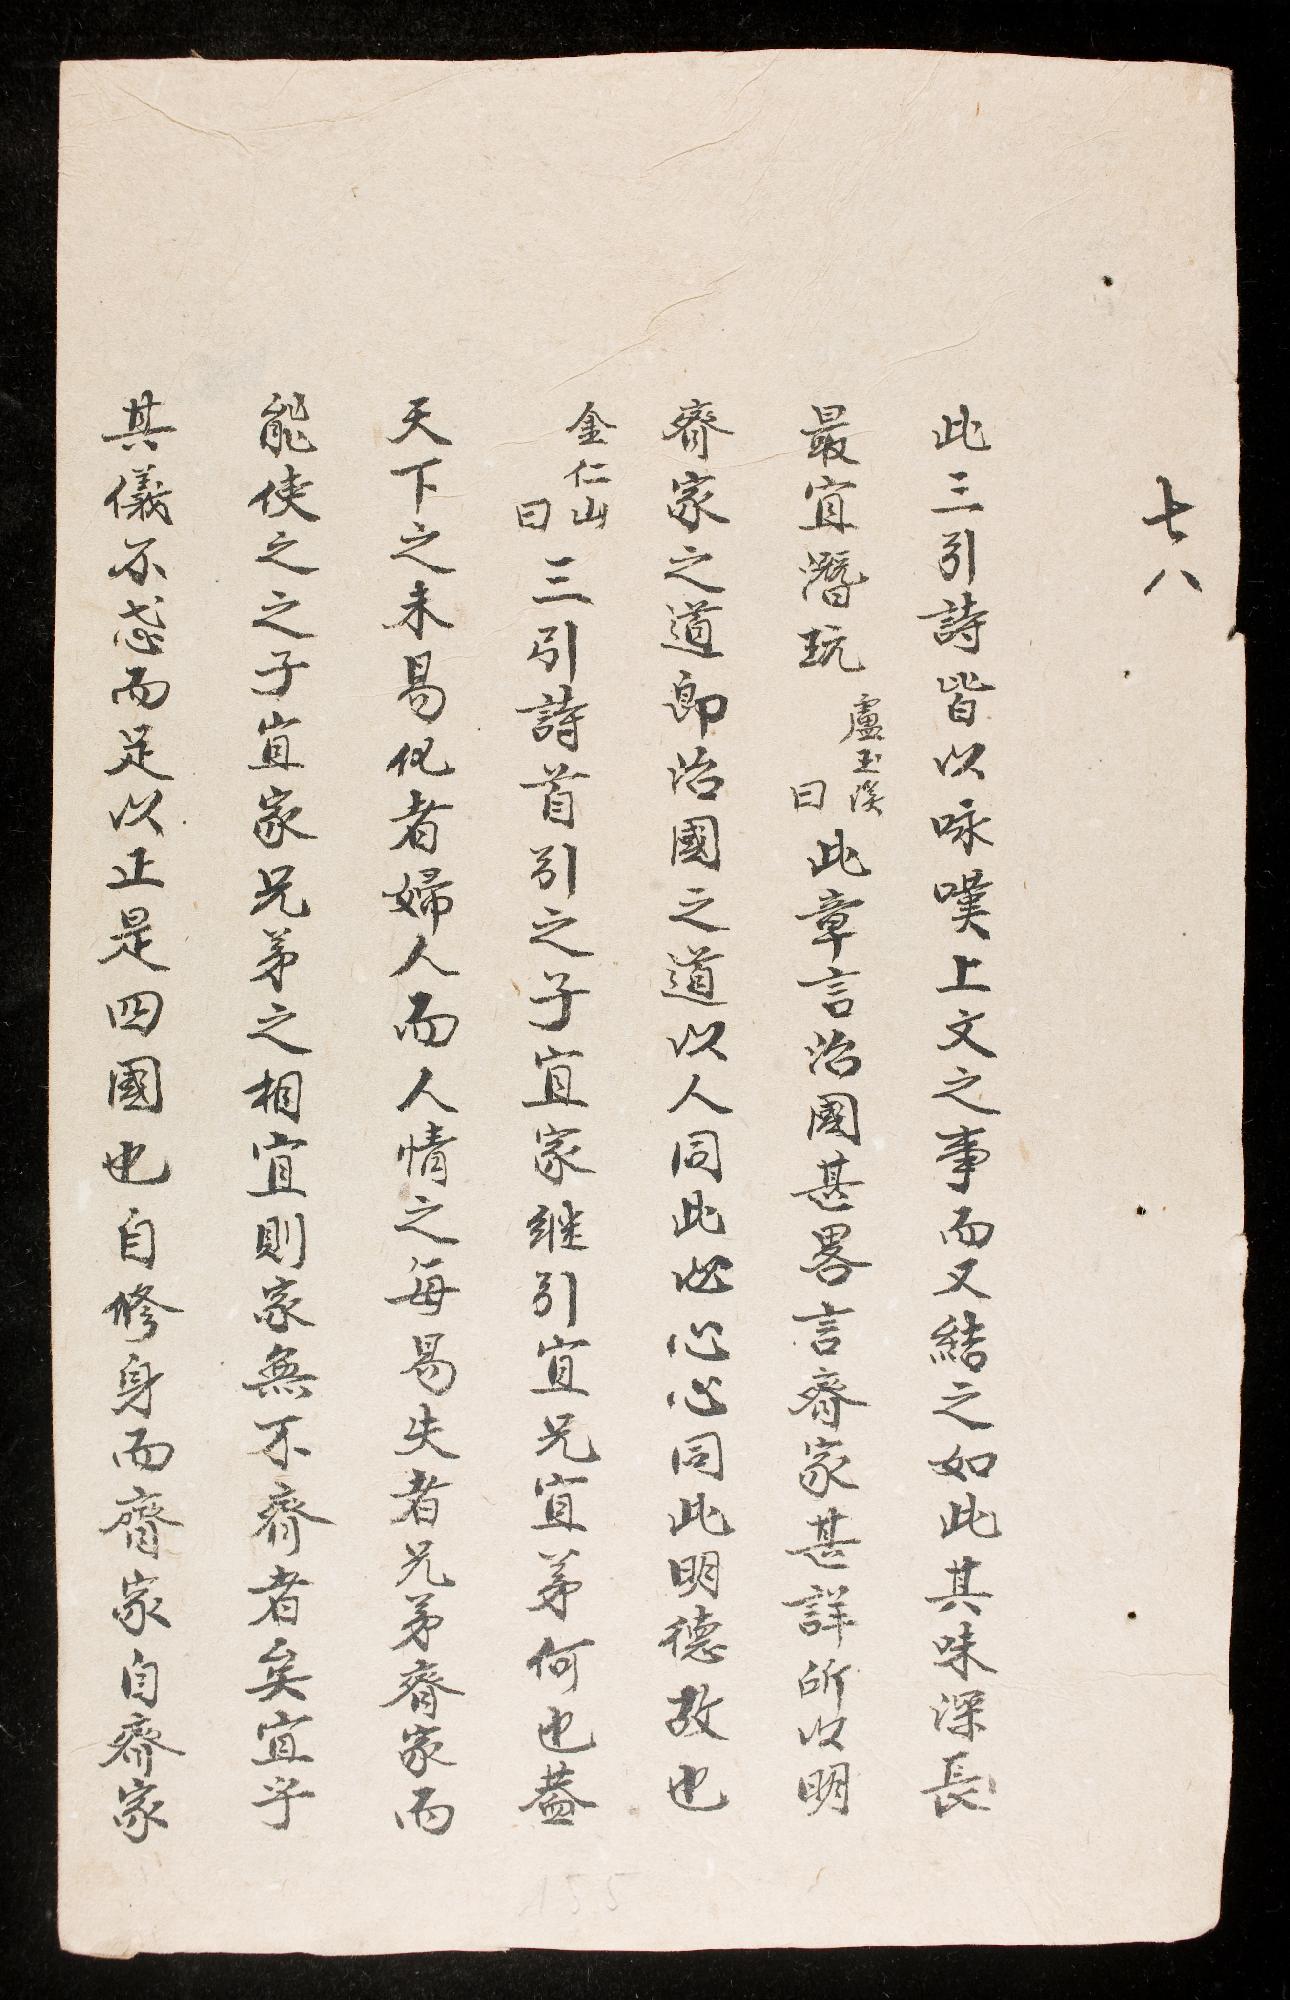 七八
此三引詩皆以咏嘆上文之事而又結之如此其味深長
最宜潛玩盧玉溪曰此章言治國甚畧言齊家甚詳所以明
齊家之道即治國之道以人同此心心心同此明德故也
金仁山曰三引詩首引之子宜家继引宜兄宜弟何也蓋
天下之未易化者婦人而人情之每易失者兄弟齊家而
能使之之子宜家兄弟之相宜則家無不齊者矣宜乎
其儀不忒而足以正是四國也自修身而齊家自齊家
155